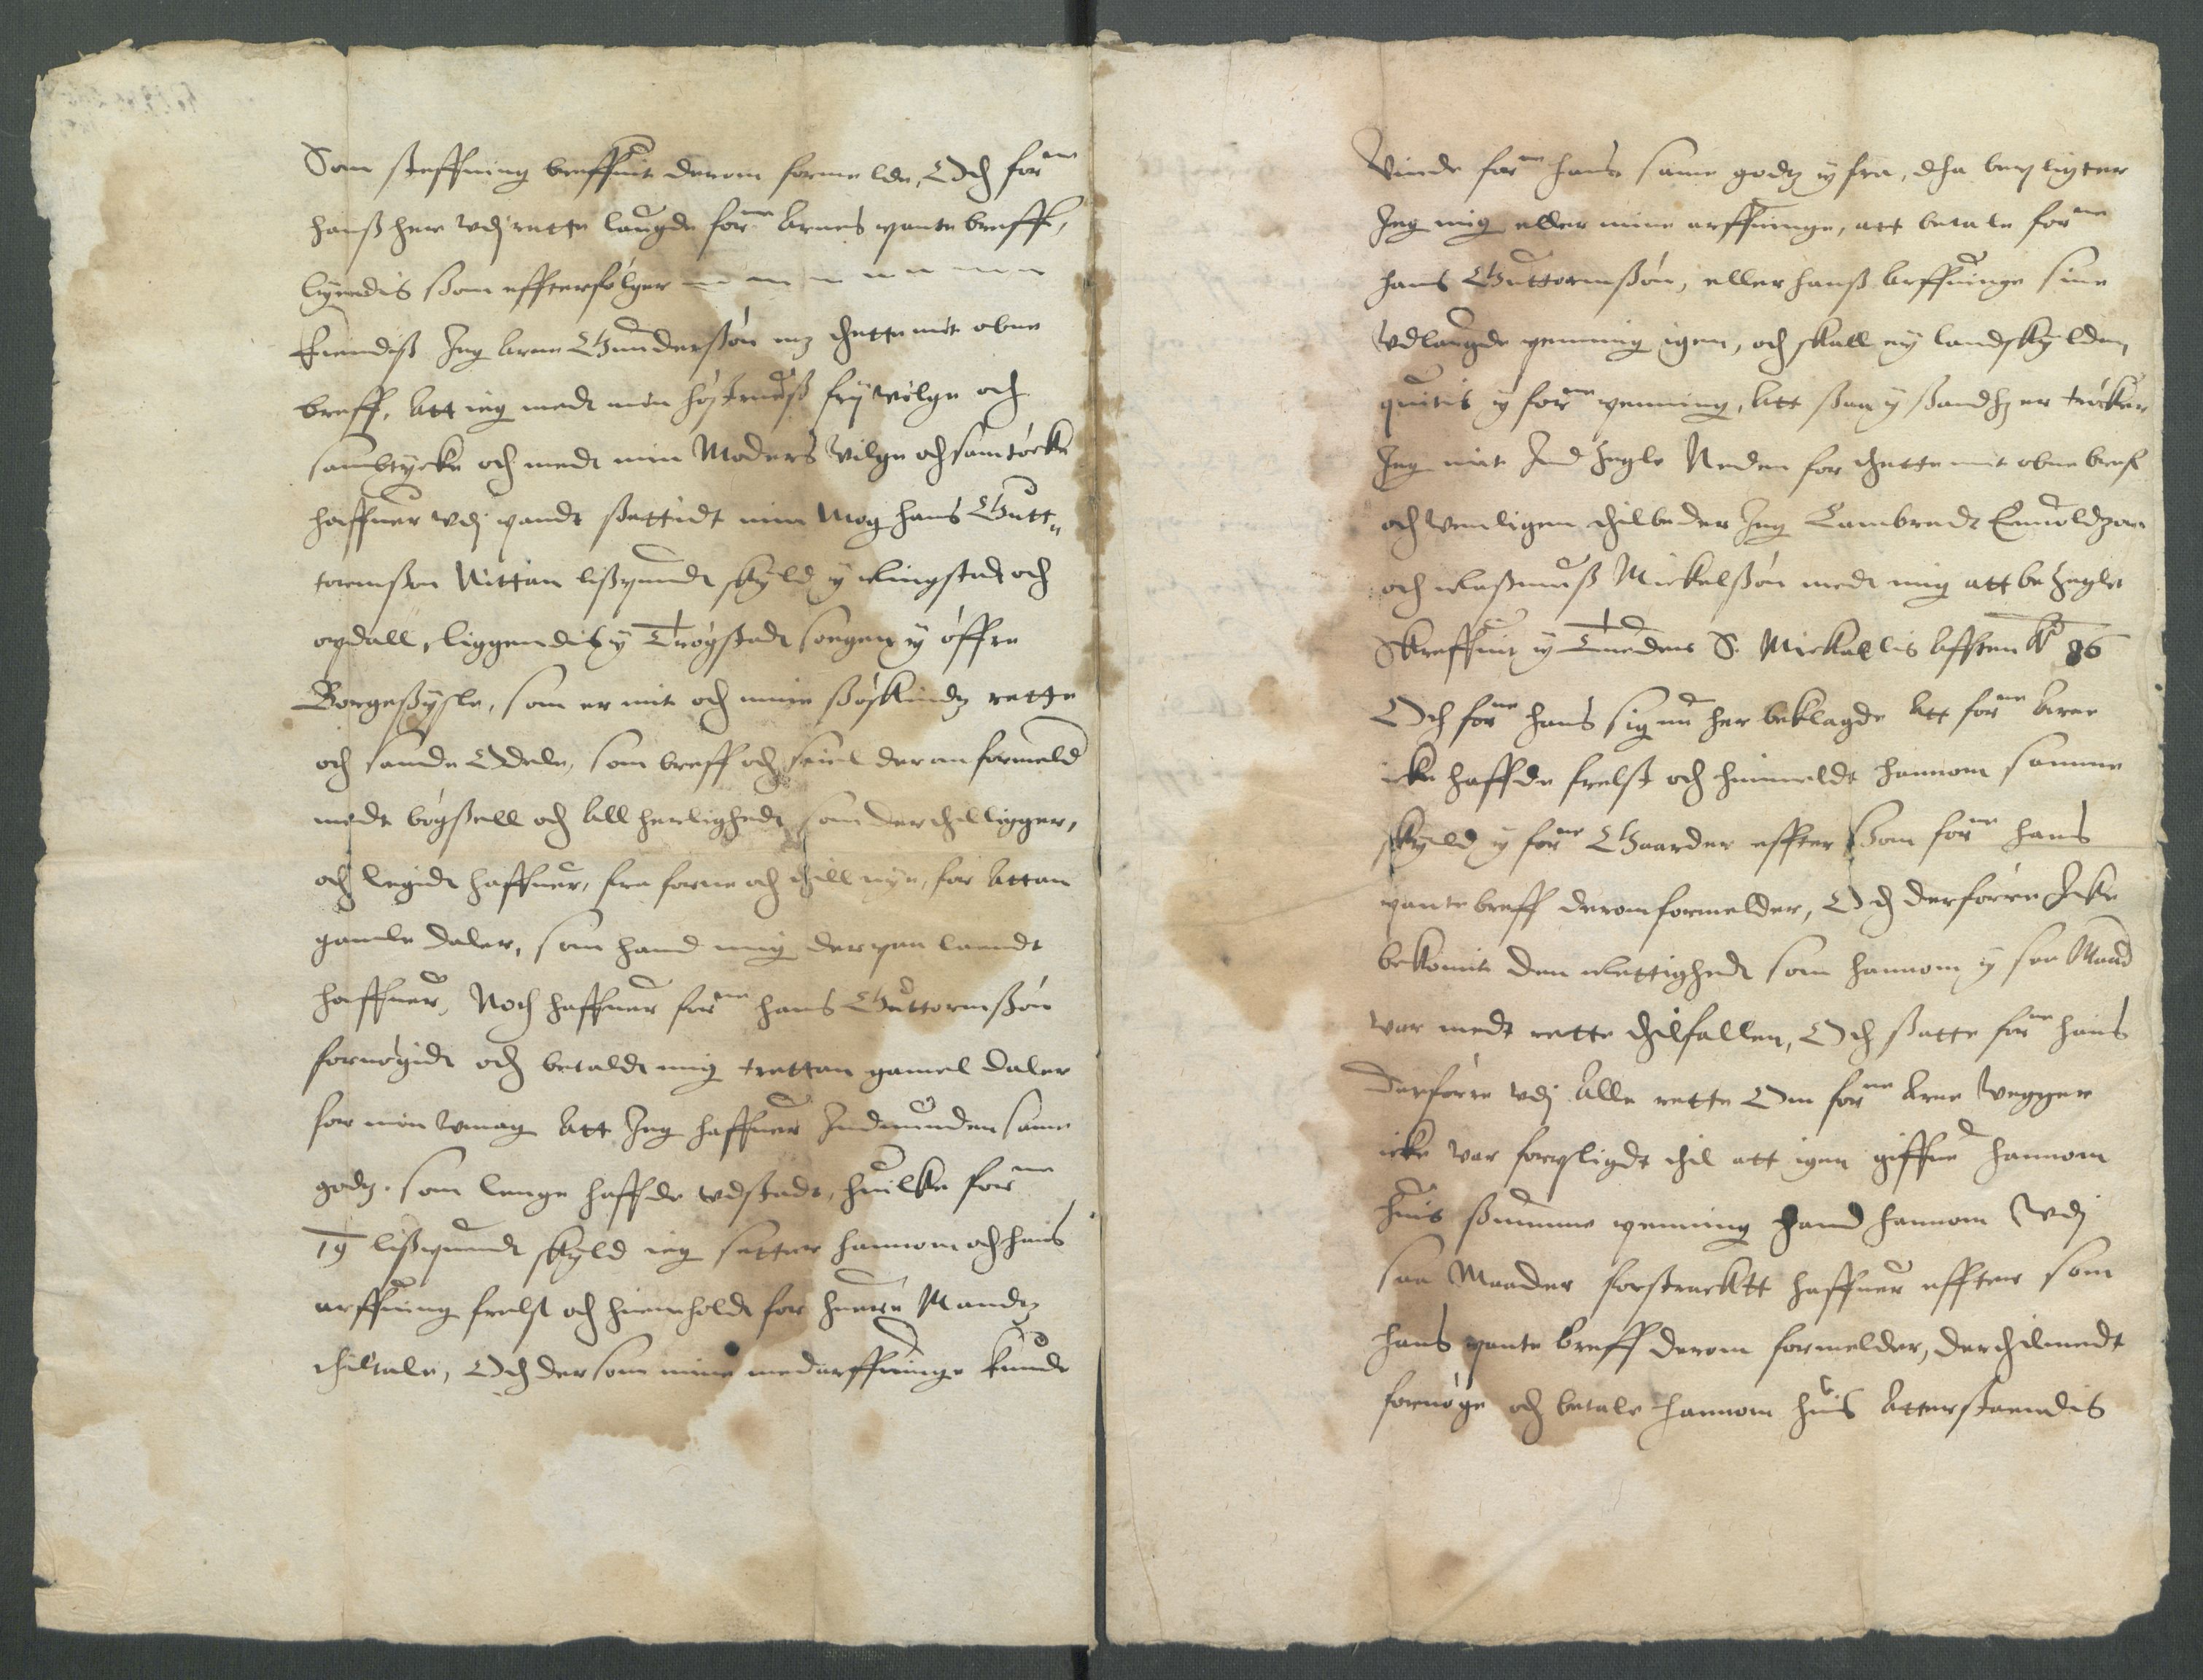 Som steffning breffuit derom formelde, Och forne
hanß her vdj rette laugde forne Arnes pante breff,
lyendis ßom effterfølger
Kiendiß Jeg Arne Gunderßøn mz thette mit obne
breff, Att ieg medt min høstruß frij vilge och
samtycke och medt min Moders vilge och samtøcke
haffuer vdj pandt ßattidt min Mog hans Gutt„
tormßen Nittan lißpundt skyld y Ringstadt och
opdall, liggendis y Trøgstadt sogen y øffre
Borgeßysle, som er mit och mine ßøskindz rette
och sande Odele, som breff och seiel derom formeld
medt bøgßell och All herlighedt som der thil ligger,
och legidt haffuer, fra forne och thill nye, for Attan
gamle daler, som hand mig der paa laandt
haffuer, Noch haffuer forne hans Guttormßøn
fornøgidt och betaldt mig trettan gamel daler
for min vmag Att Jeg haffuer Indvunden same
godz. som lenge haffde vdstadt, huilke forne
19 lißpundt skyld ieg setter hannom och hans
arffuing frelst och hiemholdt for huers Mandz
thiltale, Och der som mine medarffuinge kunde
Vinde forne hans same godz y fra, tha bepligter
Jeg mig eller mine arffuinge, att betale forne
hans Guttormßøn, eller hanß Arffuinge sine
vdlaugde penning igen, och skall ey landskylden
quitis y forne penning, Att ßaa y ßandhz er trøcker
Jeg mit Indzegle Neden for thette mit obne breff
och venligen thilbeder Jeg Lambredt
och Raßmuß Mickelßøn medt mig att bezegle
Skreffuit y S. Mickallis Afften Ao 86
Och forne hans sig nu her beklagde Att forne Arne
icke haffde frelst och hiemeldt hannom samme
skyld y forne Gaarder effter ßom forne hans
pante breff derom formelder, Och derforre Icke
bekomit den Rettighedt som hannom y saa Maad
var medt rette thilfallen, Och ßatte forne hans
Derforre vdj Alle rette Om forne Arne vegger
icke var forpligdt thil att igen giffue hannom
huis ßumme penning hand hannom vdj
saa Maader forstracktt haffuer effter som
hans pante breff derom formelder, der thilmedt
fornøge och betale hannom huis Atterstaendis